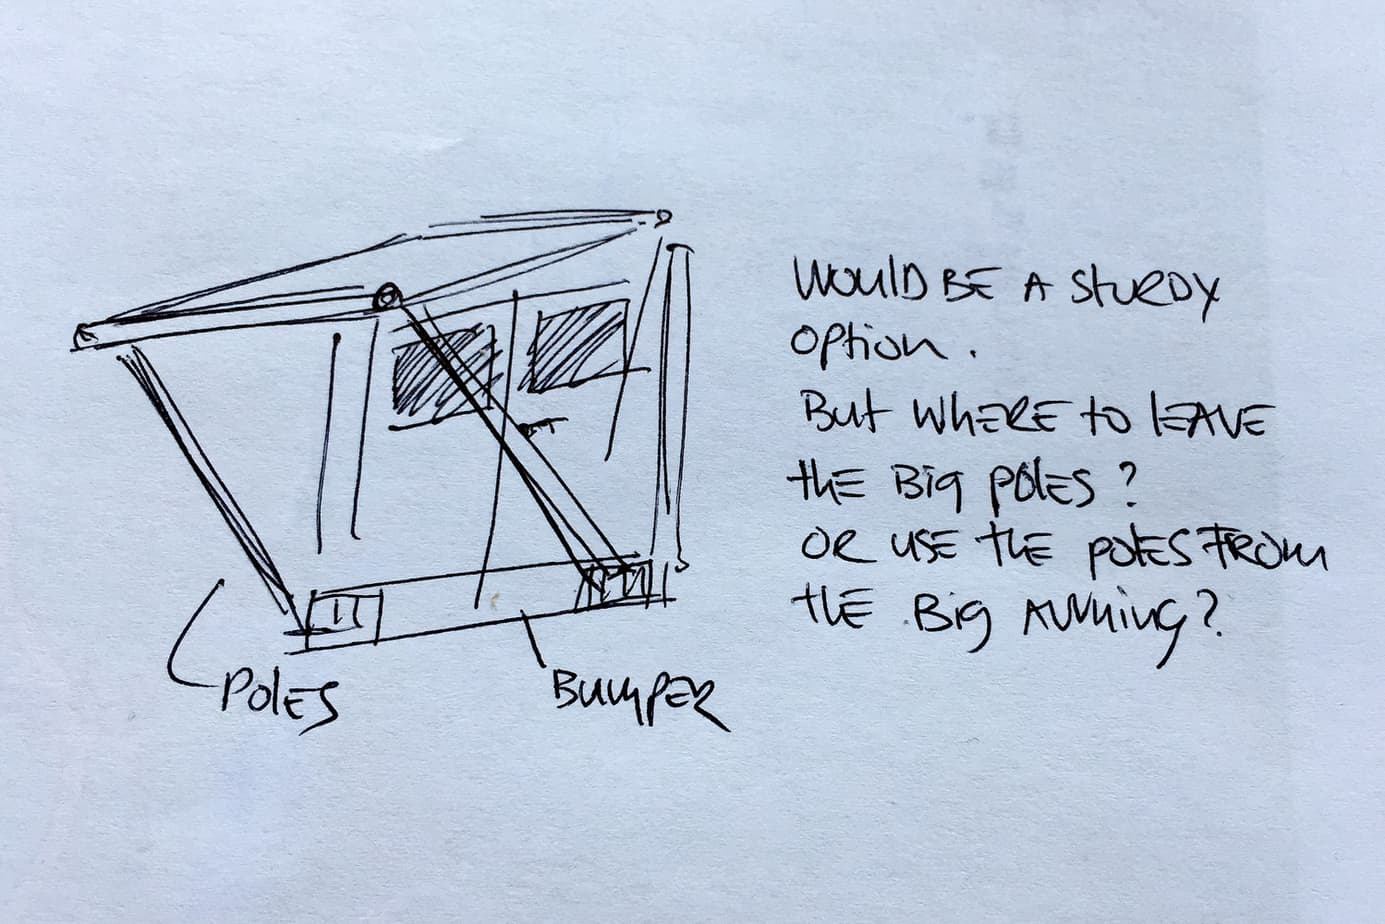 WOULD BE A STURDY
OPTION.
BUT WHERE TO LEAVE
THE BIG POLES?
OR USE THE POLES FROM
THE BIG AWNING?
POLES
BUMPER